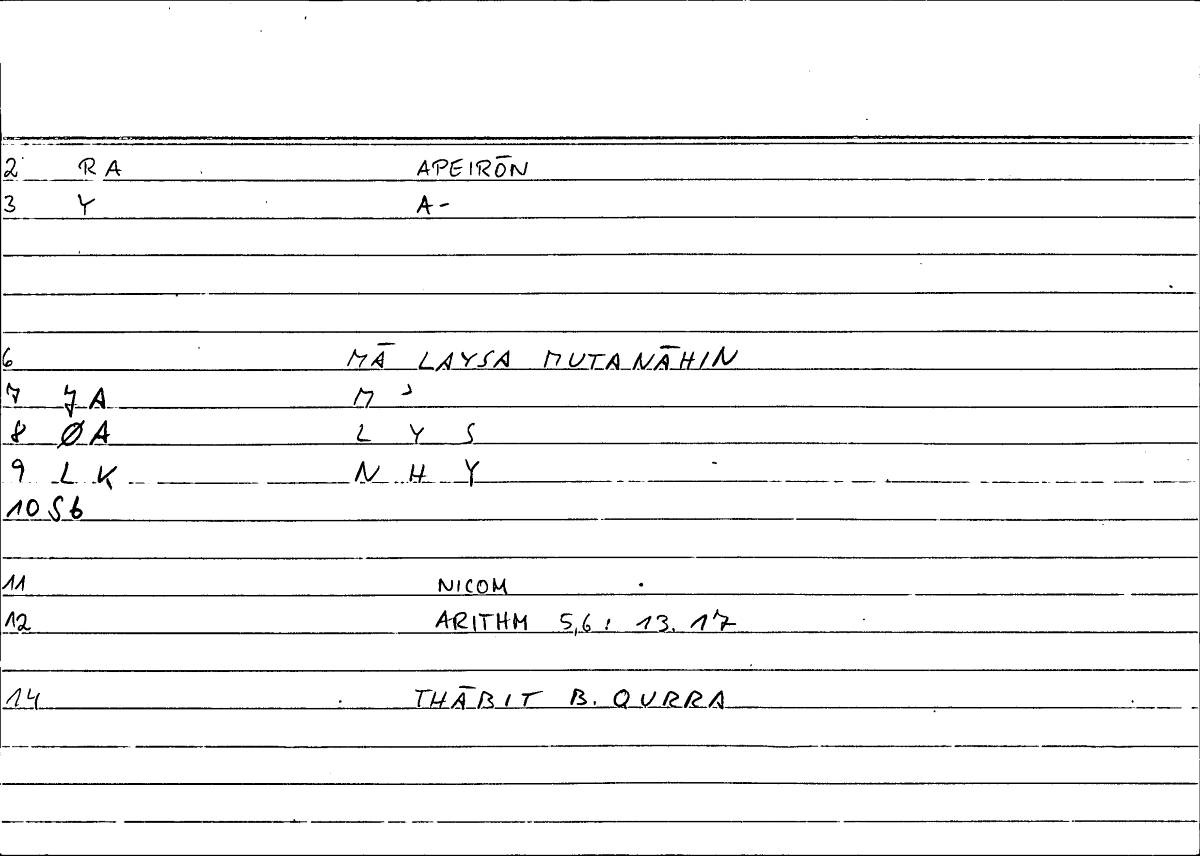 2 RA APEIRŌN
3 Y A-
6 MĀ LAYSA MUTANĀHIN
7 JA M ʾ
8 ØA L Y S
9 LK N H Y
10 Sb
11 NICOM
12 ARITHM 5,6: 13.17
14 THĀBIT B. QURRA